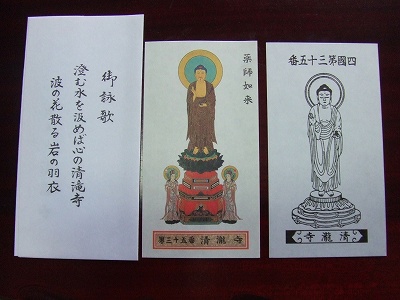 御詠歌
澄む水を汲めば心の清滝寺
波の花散る岩の羽衣
薬師如来
第三十五番 清瀧寺
四國第三十五番
清瀧寺